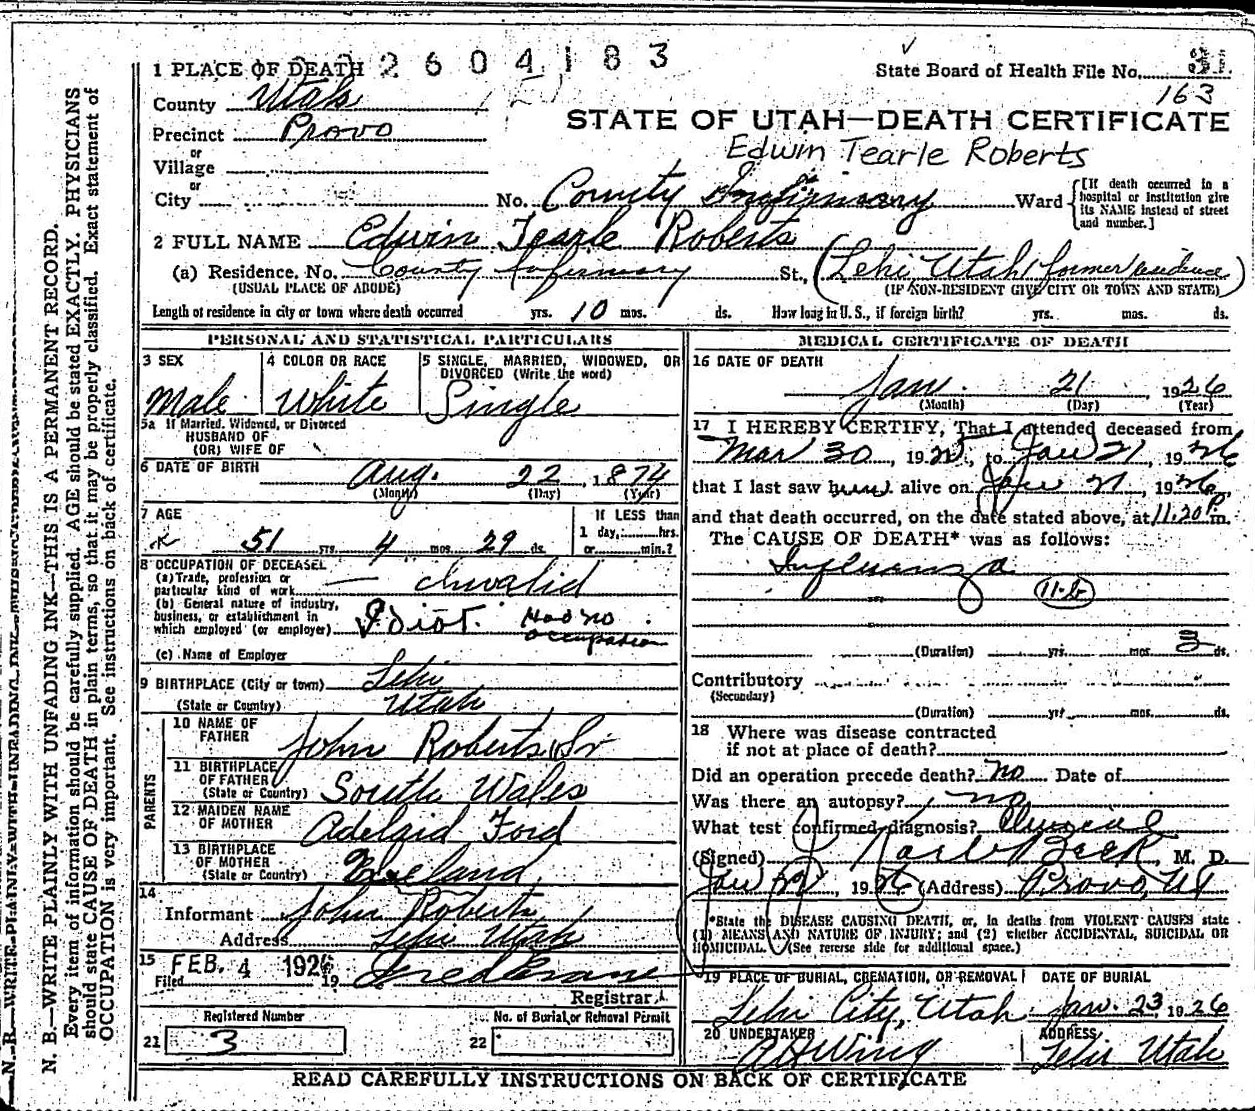 1 PLACE OF DEATH 2604183
State Board of Health File No. 31
163
County Utah
Precinct Provo
STATE OF UTAH—DEATH CERTIFICATE
Edwin Tearle Roberts
or
Village
or
City
No. County Infirmary Ward [If death occurred in a hospital or institution give its NAME instead of street and number.]
2 FULL NAME Edwin Tearle Roberts
(a) Residence, No. County Infirmary St., (Lehi Utah former residence)
(USUAL PLACE OF ABODE) (IF NON-RESIDENT GIVE CITY OR TOWN AND STATE)
Length of residence in city or town where death occurred yrs. 10 mos. ds. How long in U. S., if foreign birth? yrs. mos. ds.
PERSONAL AND STATISTICAL PARTICULARS
3 SEX
Male
4 COLOR OR RACE
White
5 SINGLE, MARRIED, WIDOWED, OR
DIVORCED (Write the word)
Single
5a If Married, Widowed, or Divorced
HUSBAND OF
(OR) WIFE OF
6 DATE OF BIRTH Aug. 22, 1874
(Month) (Day) (Year)
7 AGE
51 yrs. 4 mos. 29 ds.
If LESS than
1 day, hrs.
or min.?
8 OCCUPATION OF DECEASED
(a) Trade, profession or
particular kind of work — Invalid
(b) General nature of industry,
business, or establishment in
which employed (or employer) Idiot. Had no
occupation
(c) Name of Employer
9 BIRTHPLACE (City or town) Lehi
(State or Country) Utah
PARENTS
10 NAME OF
FATHER John Roberts Sr
11 BIRTHPLACE
OF FATHER
(State or Country) South Wales
12 MAIDEN NAME
OF MOTHER Adelaid Ford
13 BIRTHPLACE
OF MOTHER
(State or Country) England
14
Informant John Roberts
Address Lehi Utah
15 FEB. 4 1926
Filed 19 Fred Crane
Registrar.
Registered Number
21 3
No. of Burial or Removal Permit
22
MEDICAL CERTIFICATE OF DEATH
16 DATE OF DEATH
Jan. 21 1926
(Month) (Day) (Year)
17 I HEREBY CERTIFY, That I attended deceased from
Mar 30, 1925, to Jan 21, 1926
that I last saw him alive on Jan 21, 1926,
and that death occurred, on the date stated above, at 11.20 P m.
The CAUSE OF DEATH* was as follows:
Influenza
11-b
(Duration) yrs. mos. 3 ds.
Contributory
(Secondary)
(Duration) yrs. mos. ds.
18 Where was disease contracted
if not at place of death?
Did an operation precede death? no Date of
Was there an autopsy? no
What test confirmed diagnosis? Clinical
(Signed) Karl Beck, M. D.
Jan 22, 1926 (Address) Provo, Ut
*State the DISEASE CAUSING DEATH, or, in deaths from VIOLENT CAUSES state
(1) MEANS AND NATURE OF INJURY; and (2) whether ACCIDENTAL, SUICIDAL OR
HOMICIDAL. (See reverse side for additional space.)
19 PLACE OF BURIAL, CREMATION, OR REMOVAL DATE OF BURIAL
Lehi City, Utah Jan. 23, 1926
20 UNDERTAKER ADDRESS
A H Wing Lehi Utah
READ CAREFULLY INSTRUCTIONS ON BACK OF CERTIFICATE
N. B.—WRITE PLAINLY WITH UNFADING INK—THIS IS A PERMANENT RECORD.
Every item of information should be carefully supplied. AGE should be stated EXACTLY. PHYSICIANS
should state CAUSE OF DEATH in plain terms, so that it may be properly classified. Exact statement of
OCCUPATION is very important. See instructions on back of certificate.